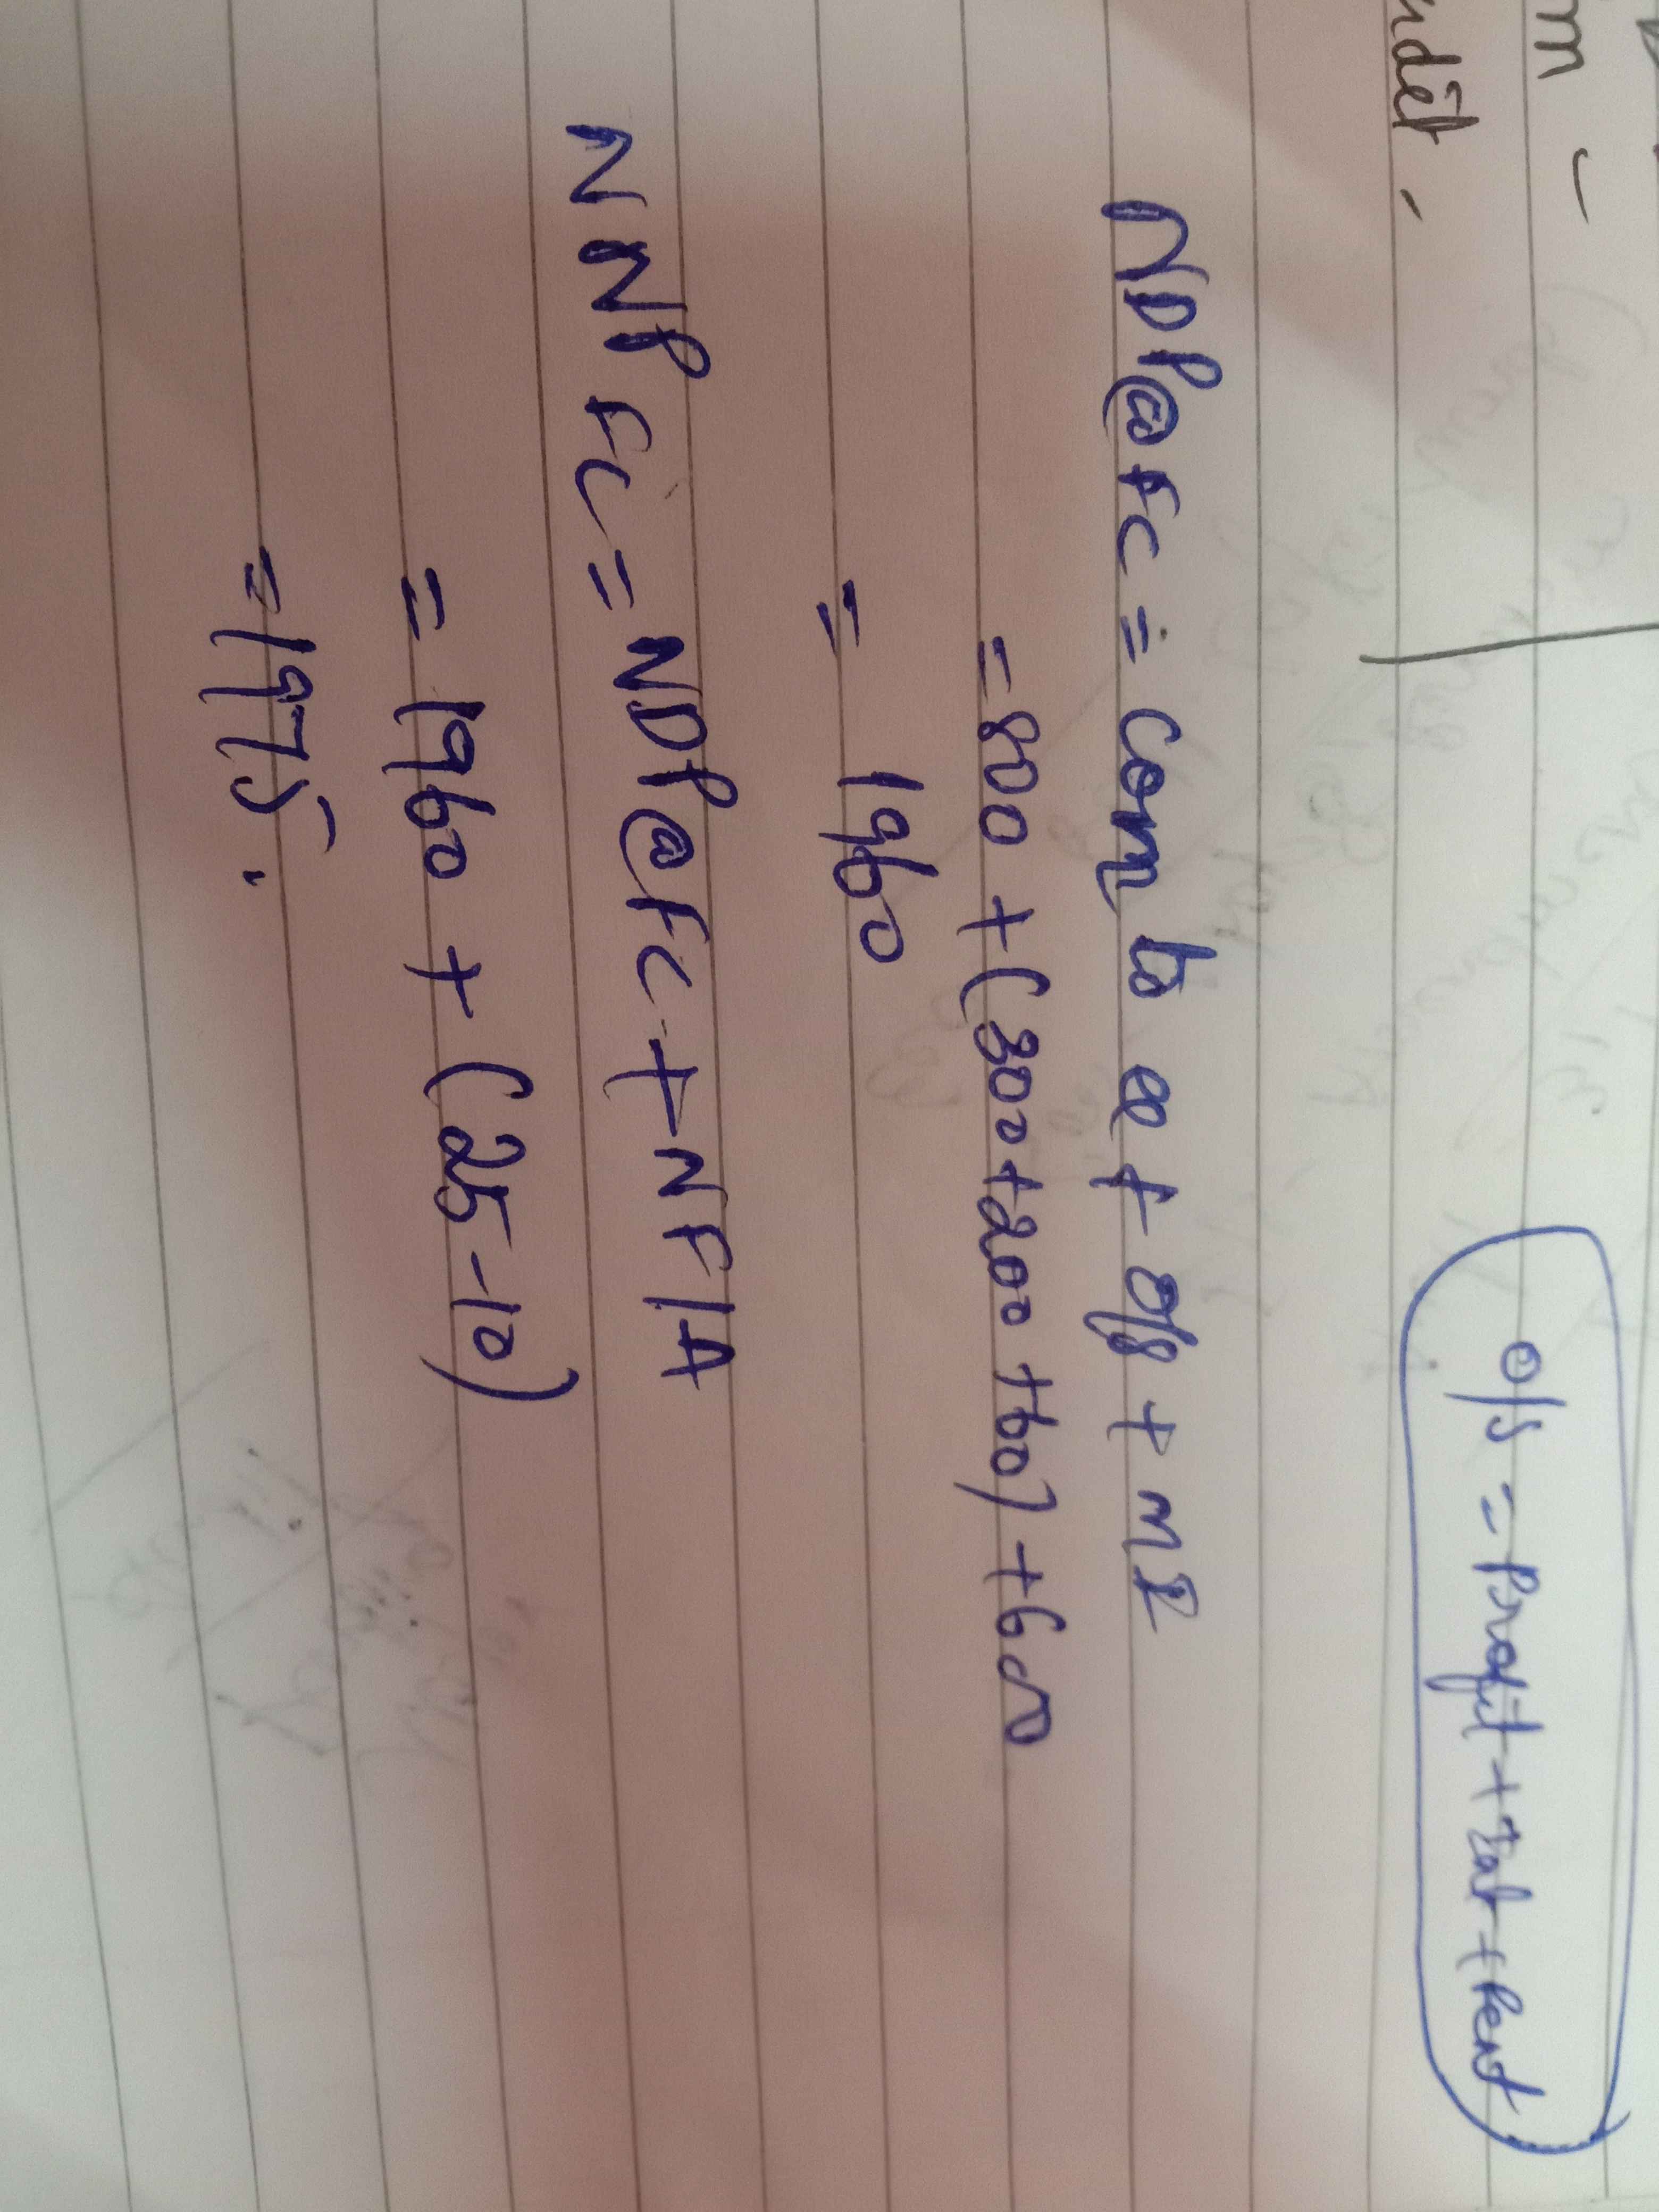 m -
ndet -
O/S = Profit + Int + Rent
NDP@FC = Com to ee + O/S + MI
= 800 + (300 + 200 + 60) + 600
= 1960
NNP FC = NDP@FC + NFIA
= 1960 + (25 - 10)
= 1975.